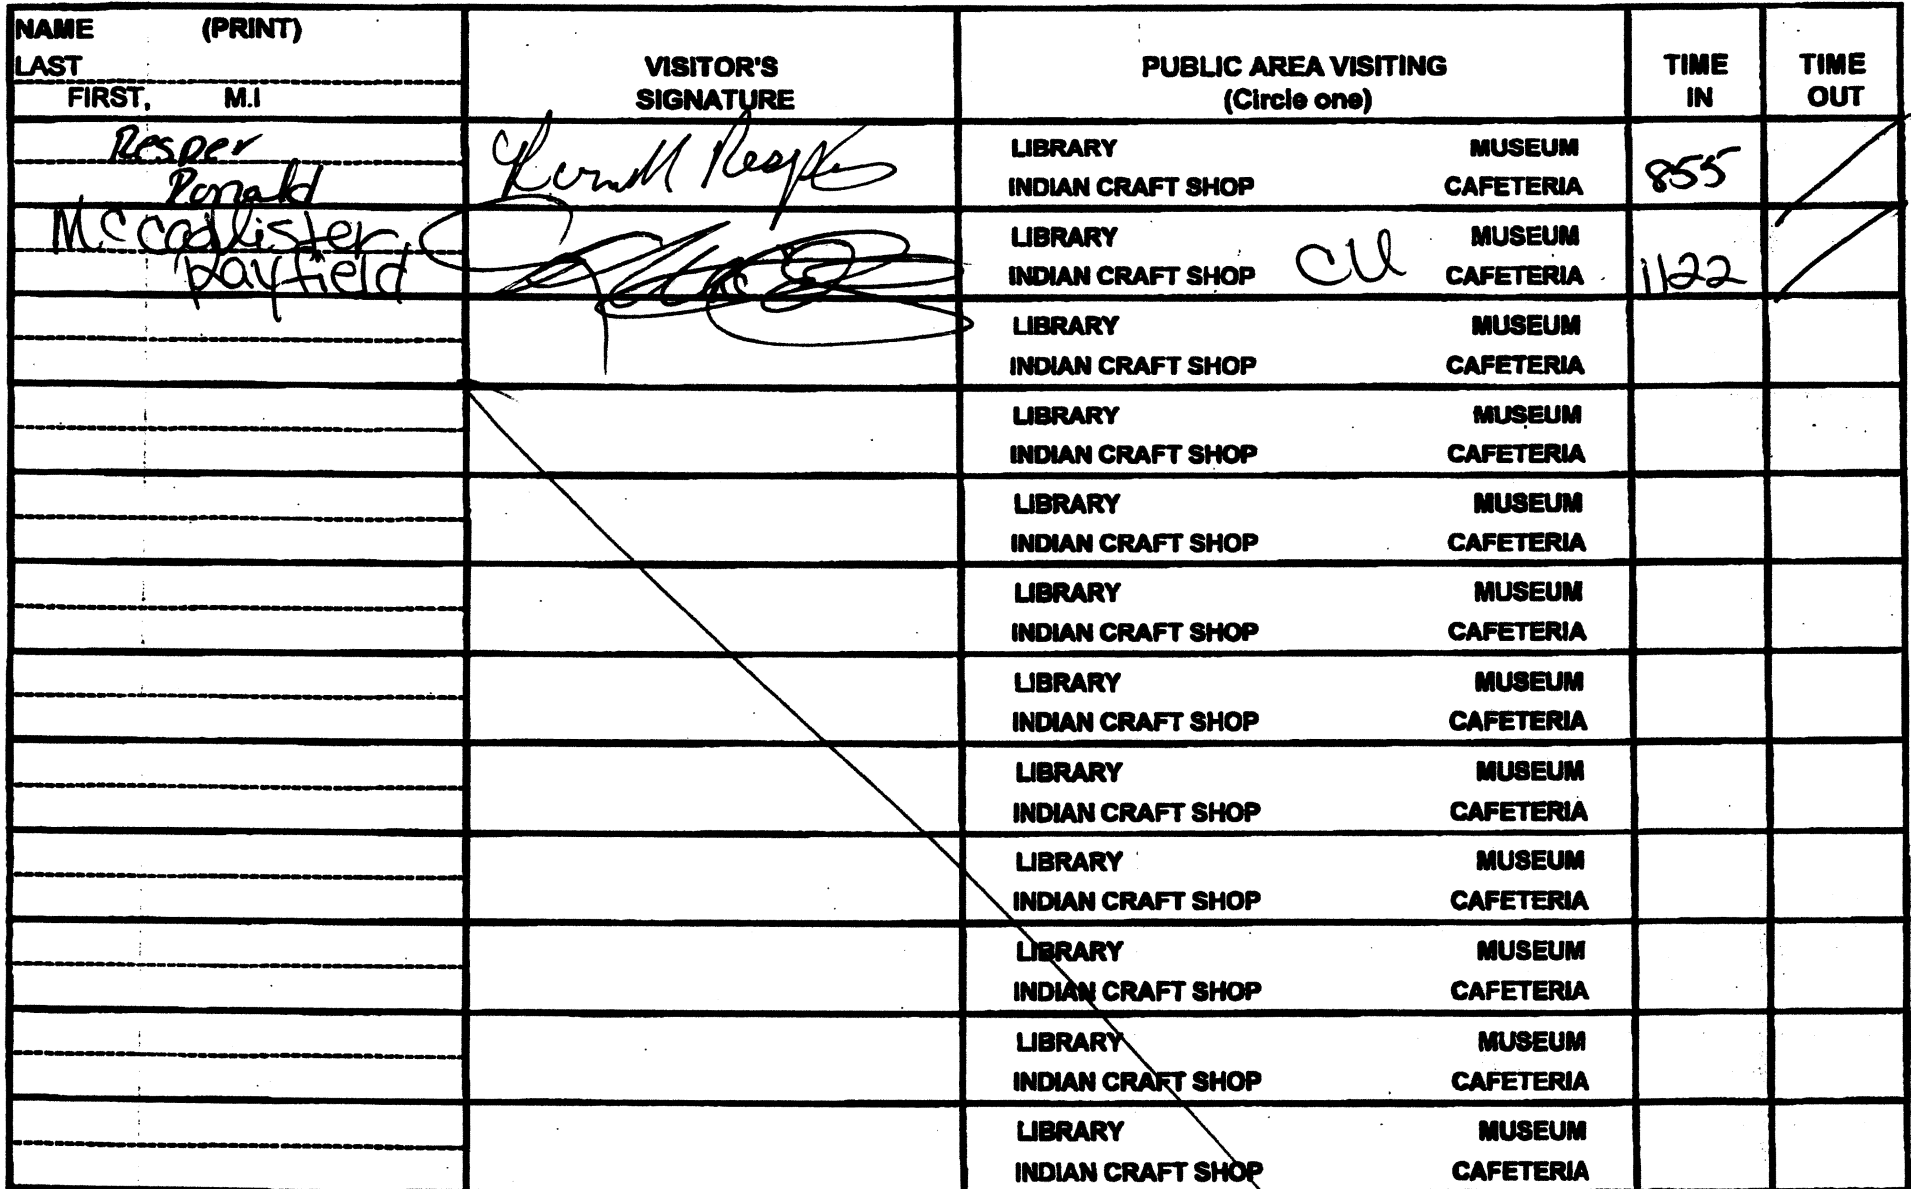 NAME (PRINT)
LAST
FIRST, M.I
VISITOR'S
SIGNATURE
PUBLIC AREA VISITING
(Circle one)
TIME
IN
TIME
OUT
Resper
Ronald
LIBRARY MUSEUM
INDIAN CRAFT SHOP CAFETERIA
855
McCadlister,
Dayfield
LIBRARY MUSEUM
INDIAN CRAFT SHOP CU CAFETERIA
1122
LIBRARY MUSEUM
INDIAN CRAFT SHOP CAFETERIA
LIBRARY MUSEUM
INDIAN CRAFT SHOP CAFETERIA
LIBRARY MUSEUM
INDIAN CRAFT SHOP CAFETERIA
LIBRARY MUSEUM
INDIAN CRAFT SHOP CAFETERIA
LIBRARY MUSEUM
INDIAN CRAFT SHOP CAFETERIA
LIBRARY MUSEUM
INDIAN CRAFT SHOP CAFETERIA
LIBRARY MUSEUM
INDIAN CRAFT SHOP CAFETERIA
LIBRARY MUSEUM
INDIAN CRAFT SHOP CAFETERIA
LIBRARY MUSEUM
INDIAN CRAFT SHOP CAFETERIA
LIBRARY MUSEUM
INDIAN CRAFT SHOP CAFETERIA